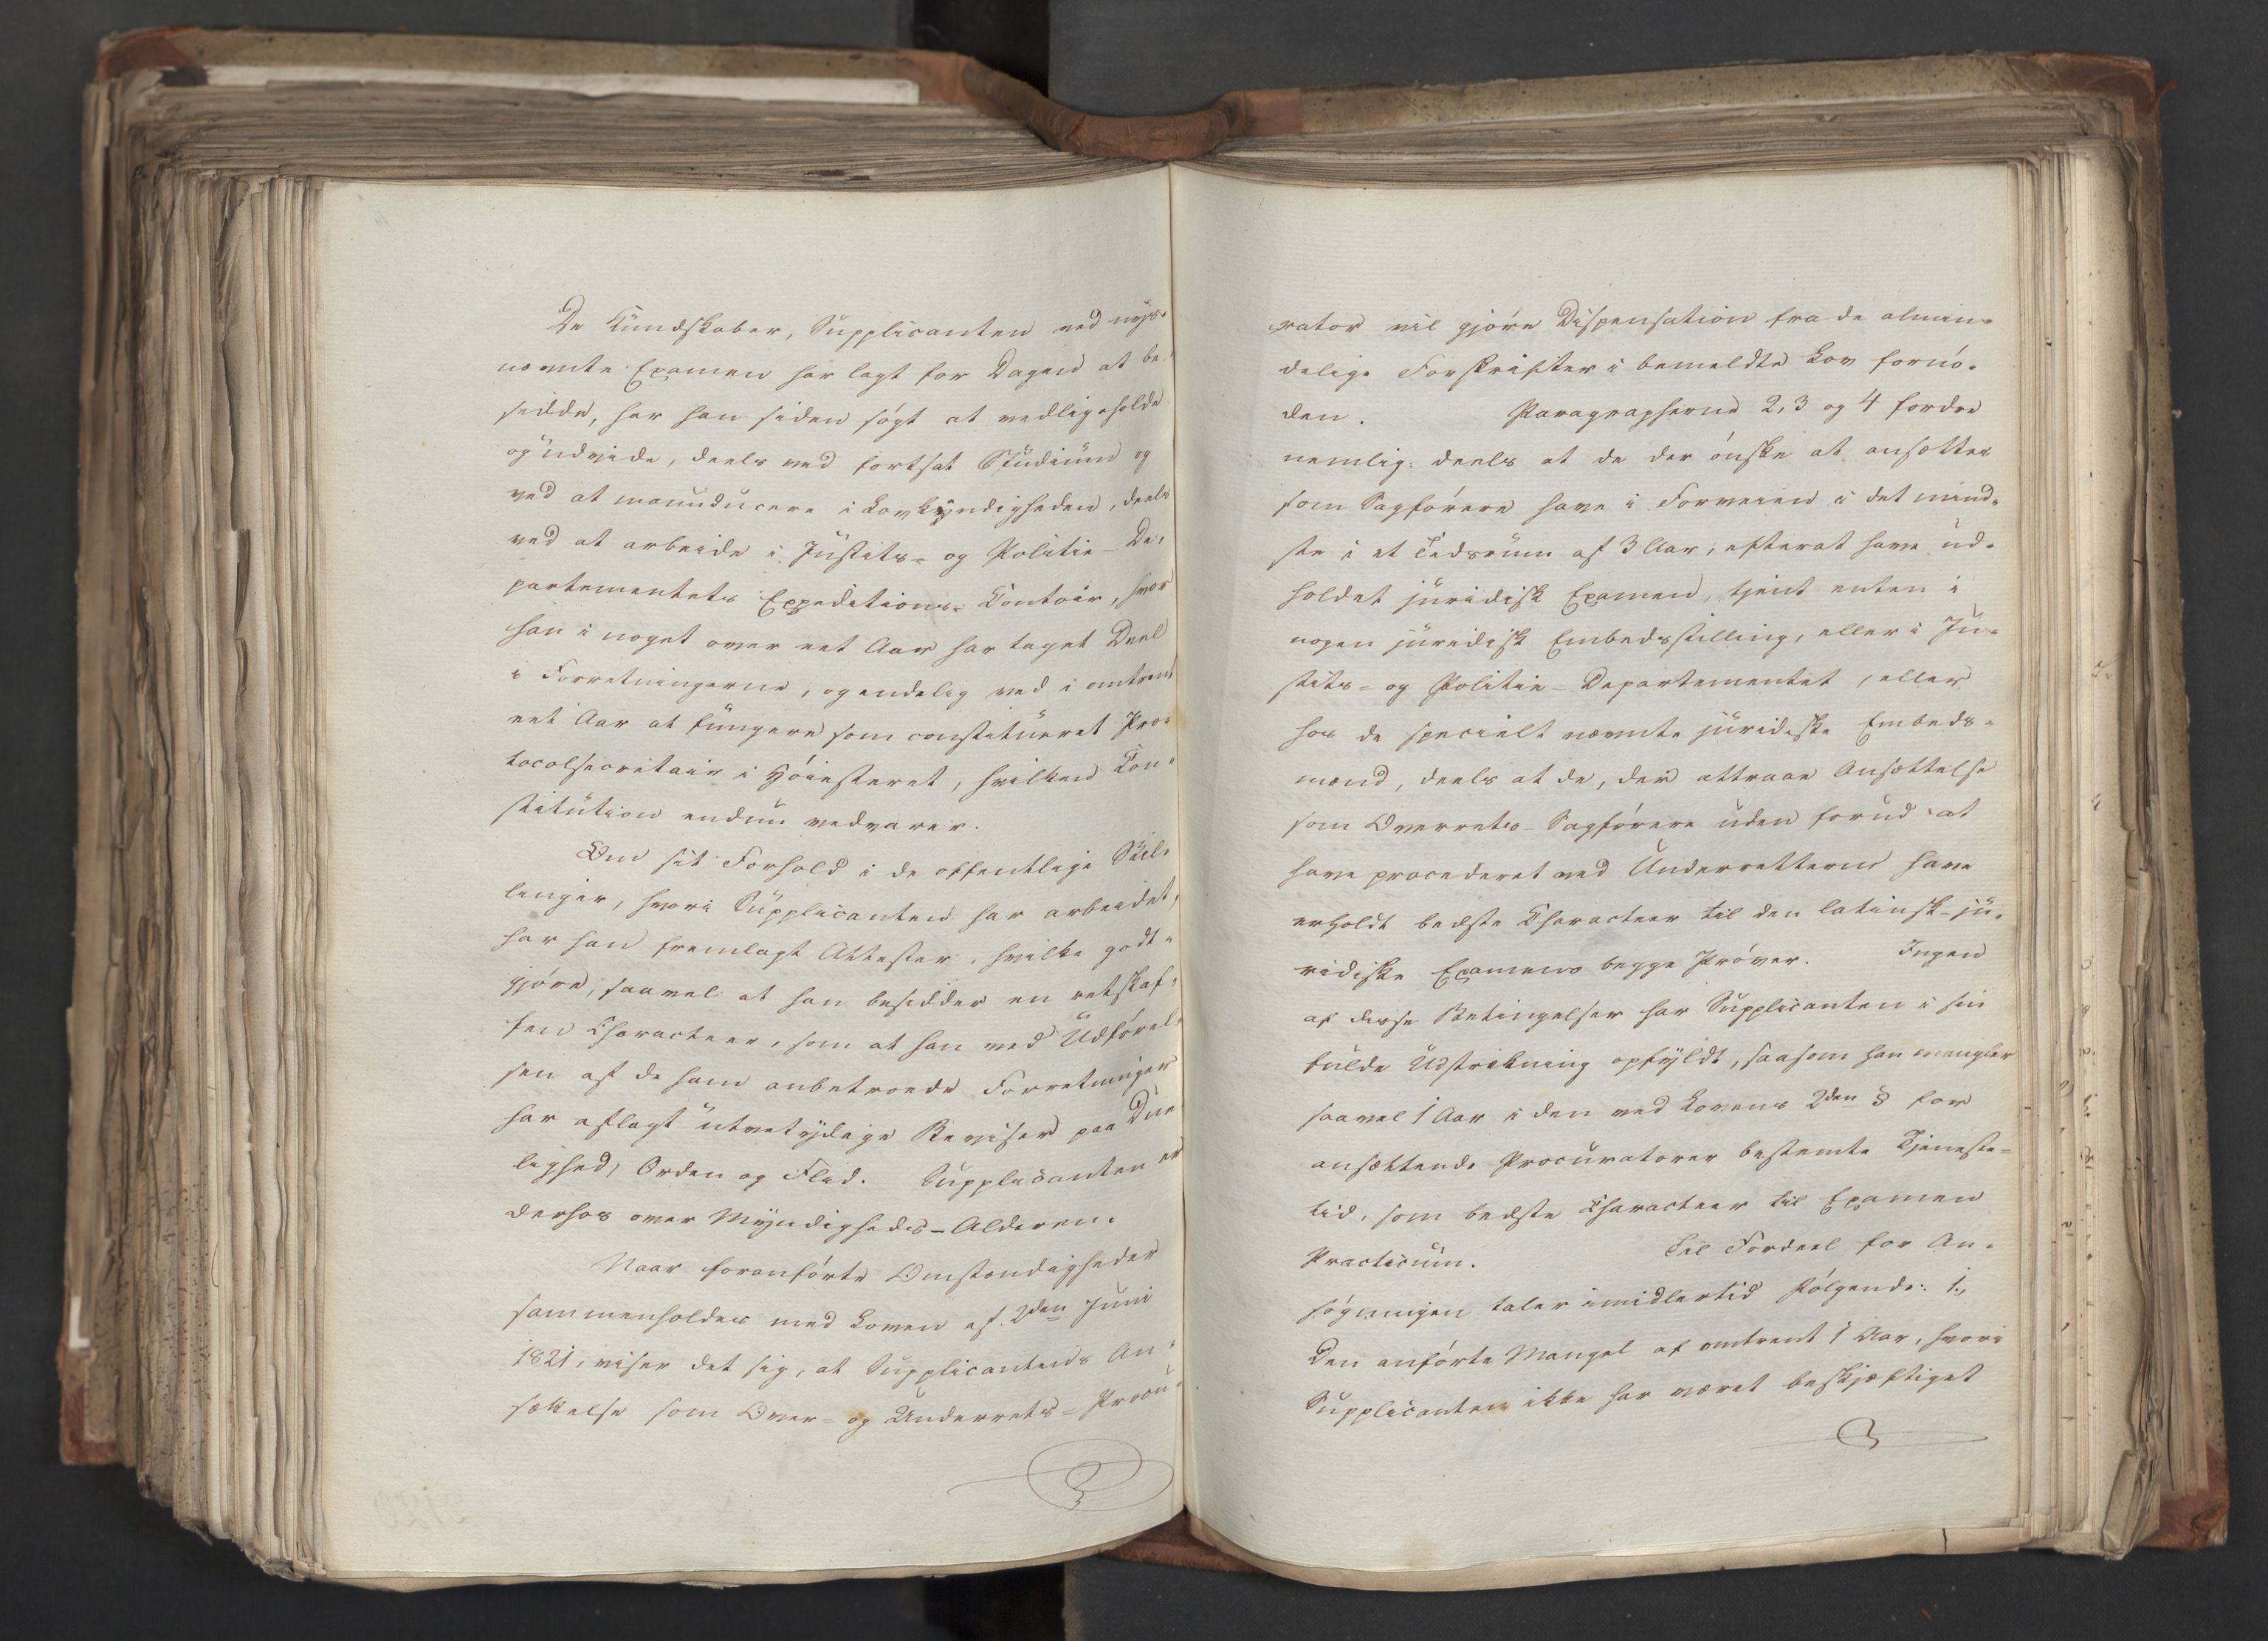 De Kundskaber, Supplicanten ved nys-
nævnte Examen har lagt for Dagen at be-
sidde, har han siden søgt at vedligeholde
og udvide, deels ved fortsat Studium og
ved at manuducere i Lovkyndigheden, deels
ved at arbeide i Justits- og Politie-De-
partementets Expeditions-Contoir, hvor
han i noget over eet Aar har taget Deel
i Forretningerne, og endelig ved i omtrent
eet Aar at fungere som constitueret Pro-
tocolsecretair i Høiesteret, hvilken Con-
stitution endnu vedvarer.
Om sit Forhold i de offentlige Stil-
linger, hvori Supplicanten har arbeidet,
har han fremlagt Attester, hvilke godt-
gjøre, saavel at han besidder en retskaf-
fen Characteer, som at han ved Udførel-
sen af de ham anbetroede Forretninger
har aflagt utvetydige Beviser paa Due
lighed, Orden og Flid. Supplicanten er
derhos over Myndigheds-Alderen.
Naar foranførte Omstændigheder
sammenholdes med Loven af 2den Juni
1821, viser det sig, at Supplicantens An-
sættelse som Over- og Underrets-Procu-
rator vil gjøre Dispensation fra de almin-
delige Forskrifter i bemeldte Lov fornø-
den. Paragrapherne 2, 3 og 4 fordre
nemlig: deels at de der ønske at ansættes
som Sagførere have i Forveien i det mind-
ste i et Tidsrum af 3 Aar, efterat have ud-
holdet juridisk Examen, tjent enten i
nogen juridisk Embedsstilling, eller i Ju-
stits- og Politie-Departementet, eller
hos de specielt nævnte juridiske Embeds-
mænd, deels at de, der attraae Ansættelse
som Overrets-Sagførere uden forud at
have procederet ved Underretterne have
erholdt bedste Characteer til den latinsk-ju-
ridiske Examens begge Prøver. Ingen
af disse Betingelser har Supplicanten i sin
fulde Udstrekning opfyldt, saasom han mangler
saavel 1 Aar i den ved Lovens 2den § for
ansættende Procuratorer bestemte Tjeneste-
tid, som bedste Characteer til Examen
Practicum. Til Fordeel for An-
søgningen taler imidlertid Følgende: 1.,
Den anførte Mangel af omtrent 1 Aar, hvori
Supplicanten ikke har været beskjæftiget